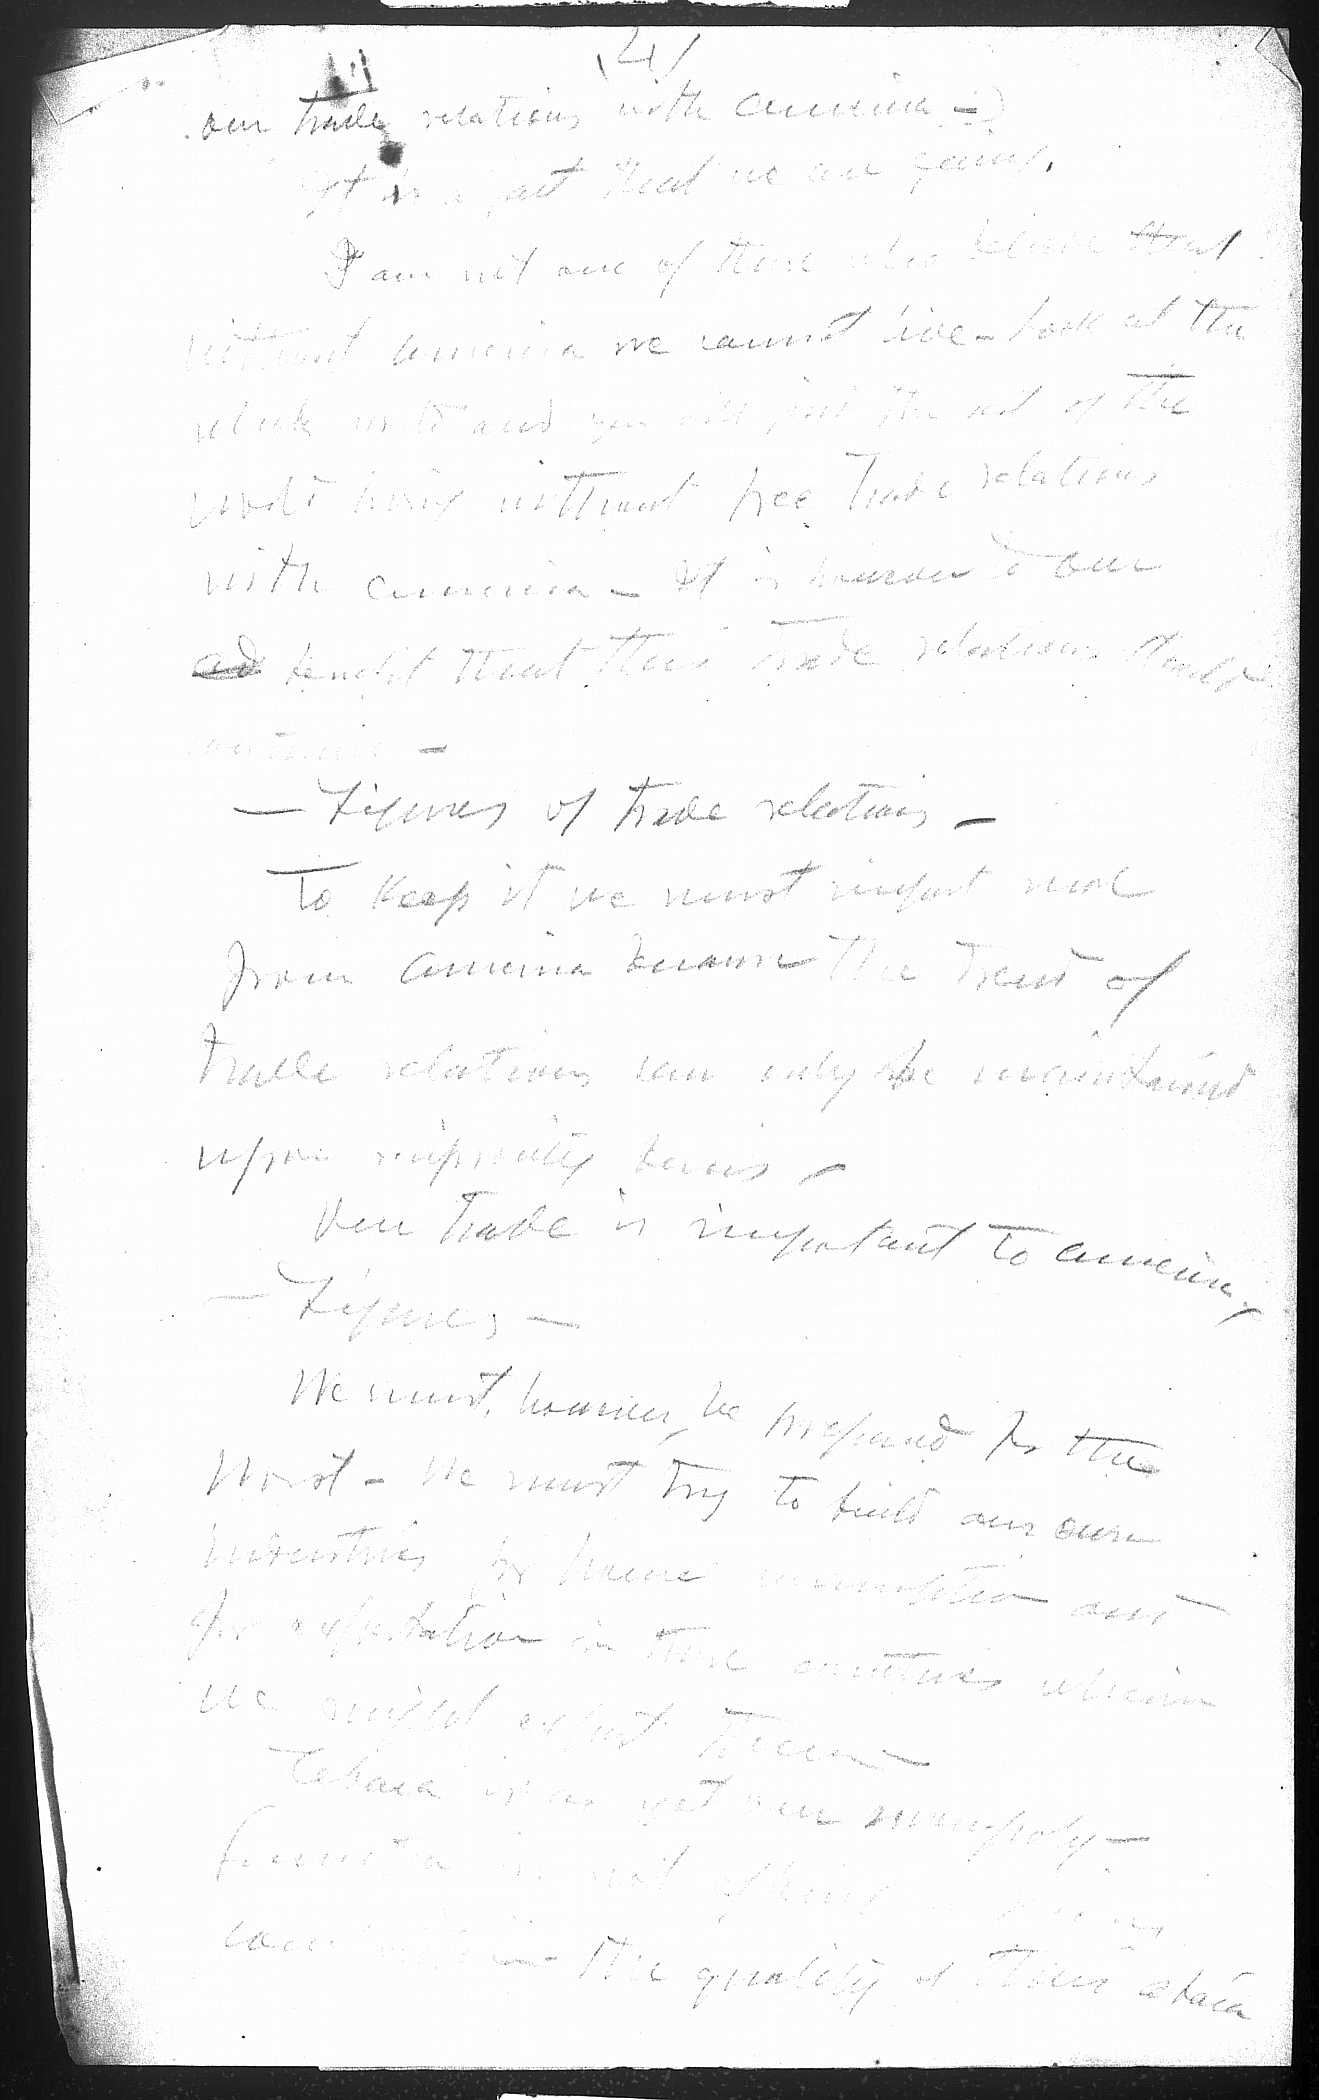 (4)
our trade relations with America -)
It is a fact that we are going.
I am not one of those who believe that
without America we cannot live - look at the
whole world and you will find the rest of the
world living without free trade relations
with America - It is however to our
benefit that this trade relations should
continue -
- Figures of trade relations -
To keep it we must import more
from America because the trend of
trade relations can only be maintained
upon reciprocity terms -
Our trade is important to America,
- Figures -
We must, however, be prepared for the
worst - We must try to build our own
industries for home consumption and
for exportation in those countries wherein
we might export them -
Abaca is as yet our monopoly -
Sumatra is not
the quality of their abaca